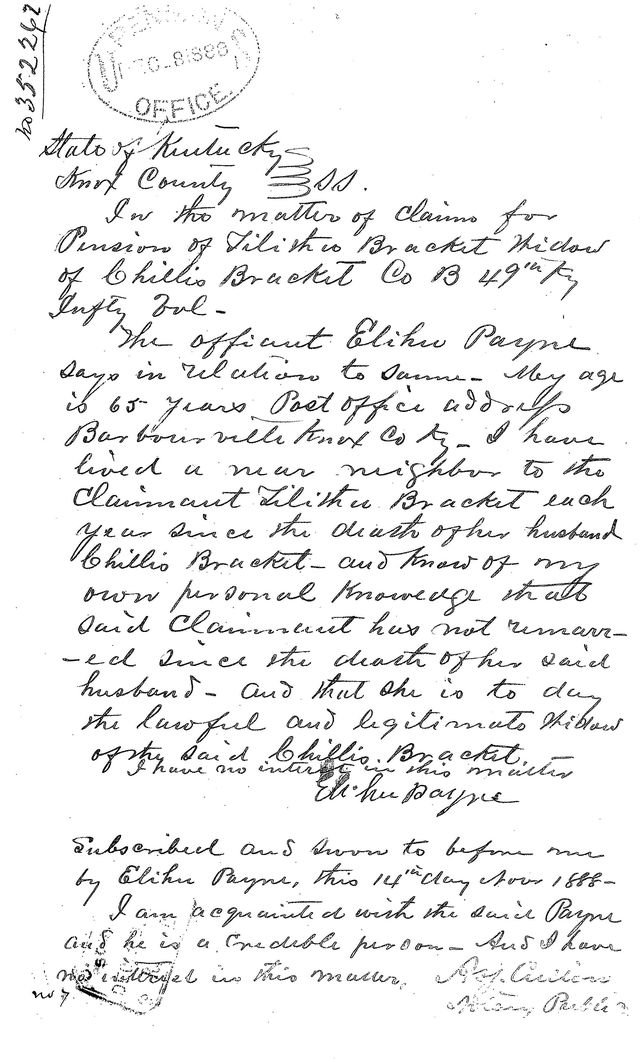 No 352262
U.S. PENSION
DEC 8 1888
OFFICE.
State of Kentucky
Knox County SS.
In the matter of claim for
Pension of Tilitha Bracket Widow
of Chillis Bracket Co B 49th Ky
Infty Vol -
The affiant Elihu Payne
says in relation to same - My age
is 65 years Post office address
Barbourville Knox Co Ky - I have
lived a near neighbor to the
Claimant Tilitha Bracket each
year since the death of her husband
Chillis Bracket - and know of my
own personal Knowedge that
said Claimant has not remarr-
-ed since the death of her said
husband - and that she is to day
the lawful and legitimate Widow
of the said Chillis Bracket.
I have no interest in this matter
Elihu Payne
Subscribed and sworn to before me
by Elihu Payne, this 14th day Novr 1888 -
I am acquainted with the said Payne
and he is a credible person - And I have
no interest in this matter,
Notary Public
no 7